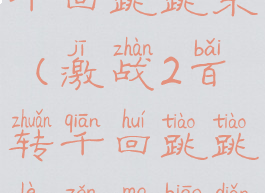 千回跳跳乐
jī zhàn bǎi
(激战2百
zhuǎn qiān huí tiào tiào
转千回跳跳
lè zěn me biāo diǎn